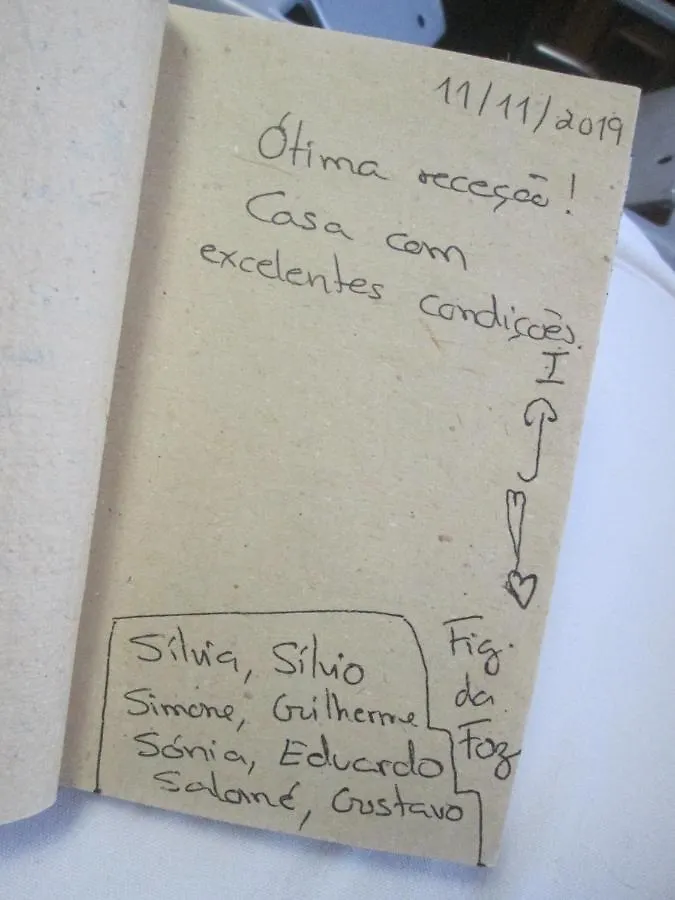 11/11/2019
Ótima receção!
Casa com
excelentes condições.
I
Fig.
da
Foz
Sílvia, Sílvio
Simone, Guilherme
Sónia, Eduardo
Salomé, Gustavo